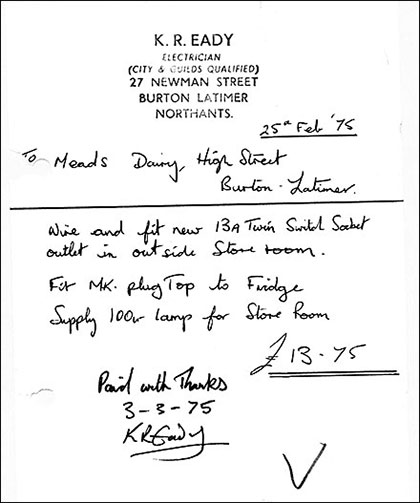 K. R. EADY
ELECTRICIAN
(CITY & GUILDS QUALIFIED)
27 NEWMAN STREET
BURTON LATIMER
NORTHANTS.
25th Feb '75
To Meads Dairy, High Street
Burton-Latimer.
Wire and fit new 13A Twin Switch Socket
outlet in outside Store room.
Fit MK. plug Top to Fridge
Supply 100w lamp for Store Room
£13-75
Paid with Thanks
3-3-75
K R Eady